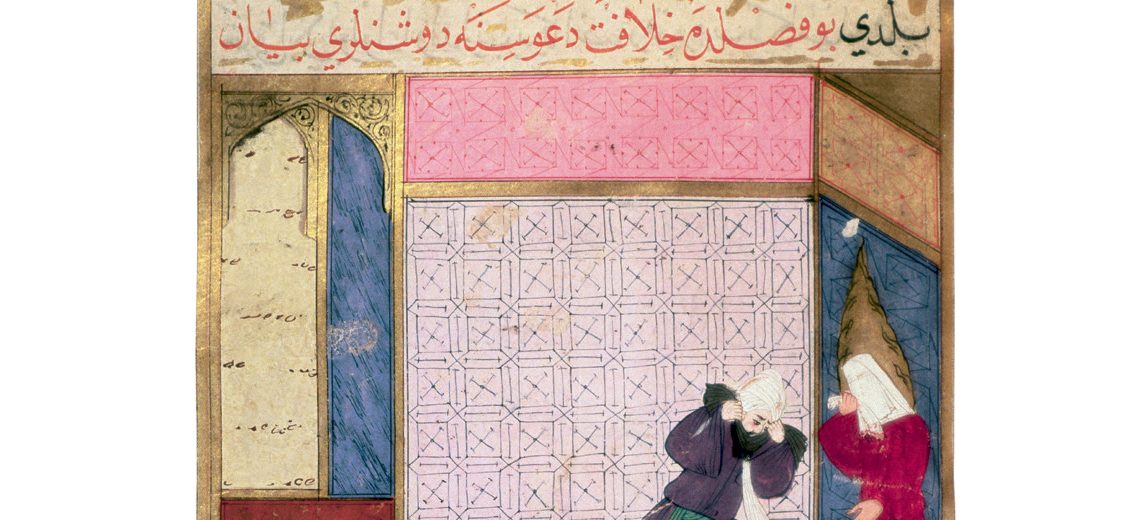 بلدي بو فصلده خلافت دعوسنه دوشنلري بيان